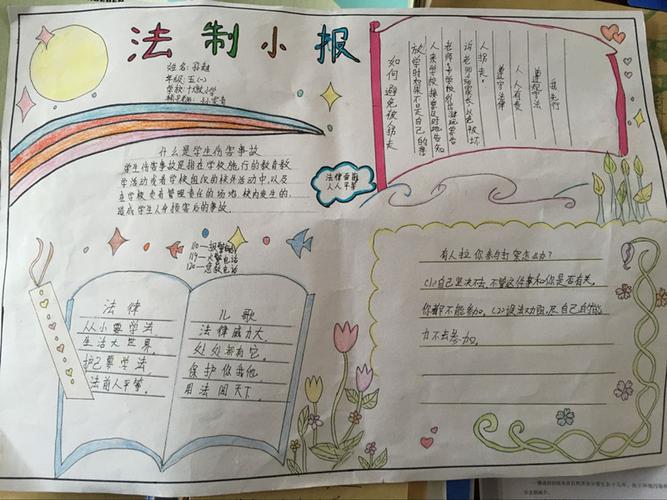 法制小报
年级:五(一)
什么是学生伤害事故
学生伤害事故是指在学校施行的教育教
学活动或者学校组织的校外活动中,以及
在学校负有管理责任的场地 校内发生的,
造成学生人身损害后的事故.
如何避免被拐走
放学时如果不是自己的亲
人来学校接要及时地告知
老师
人拐走。
遵守法律
人人有责
遵规守法
我先行
法律面前
人人平等
110—报警电话
119—火警电话
120—急救电话
法律
从小要学法
生活大世界,
护己要学法,
法前人平等.
儿歌
法律威力大,
处处都有它。
保护你我他,
用法闯天下。
有人拉你参与打架怎么办?
(1)自己坚决不去,不管这件事和你是否有关,
你都不能参加。(2)设法劝阻,尽自己的能
力不去参加。